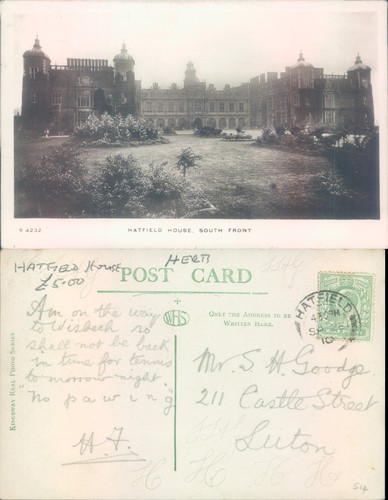 S 4232
HATFIELD HOUSE, SOUTH FRONT
HATFIELD HOUSE
£5.00
HERTS
POST CARD
WHS
ONLY THE ADDRESS TO BE
WRITTEN HERE.
KINGSWAY REAL PHOTO SERIES
HATFIELD
10
Am on the way
to Wisbech so
shall not be back
in time for tennis
to morrow night.
No pawing
H.F.
Mr. S. H. Goodge
211 Castle Street
Luton